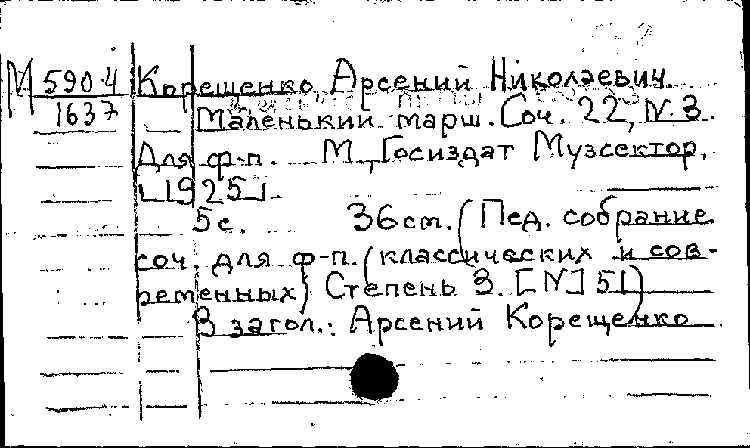 М 590-4 Корещенко Арсений Николаевич.
1637 Маленький марш. Соч. 22, N. 3.
Для ф-п. М., Госиздат Музсектор,
[1925].
5с. 36 cm. (Пед. собрание
соч. для ф-п. (классических и сов-
ременных) Степень 3. [N] 51)
В загол.: Арсений Корещенко